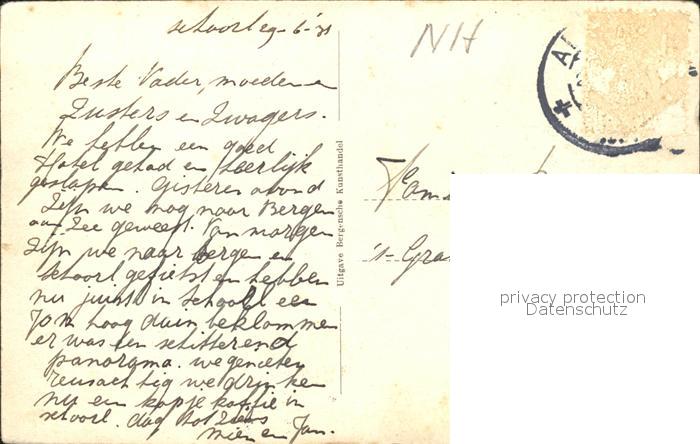 schoorl 29-6-'31
NH
Beste Vader, moeder en
Zusters en Zwagers.
We hebben een goed
Hotel gehad en heerlijk
geslapen. Gisteren avond
Zijn we nog naar Bergen
aan Zee geweest. Van morgen
Zijn we naar bergen en
schoorl gefietst en hebben
nu juist in schoorl een
70 m hoog duin beklommen
er was een schitterend
panorama. we genieten
reusachtig we drinken
nu een kopje koffie in
schoorl. dag tot Ziens
mien en Jan.
Uitgave Bergensche Kunsthandel
Fam
's-Gra
privacy protection
Datenschutz